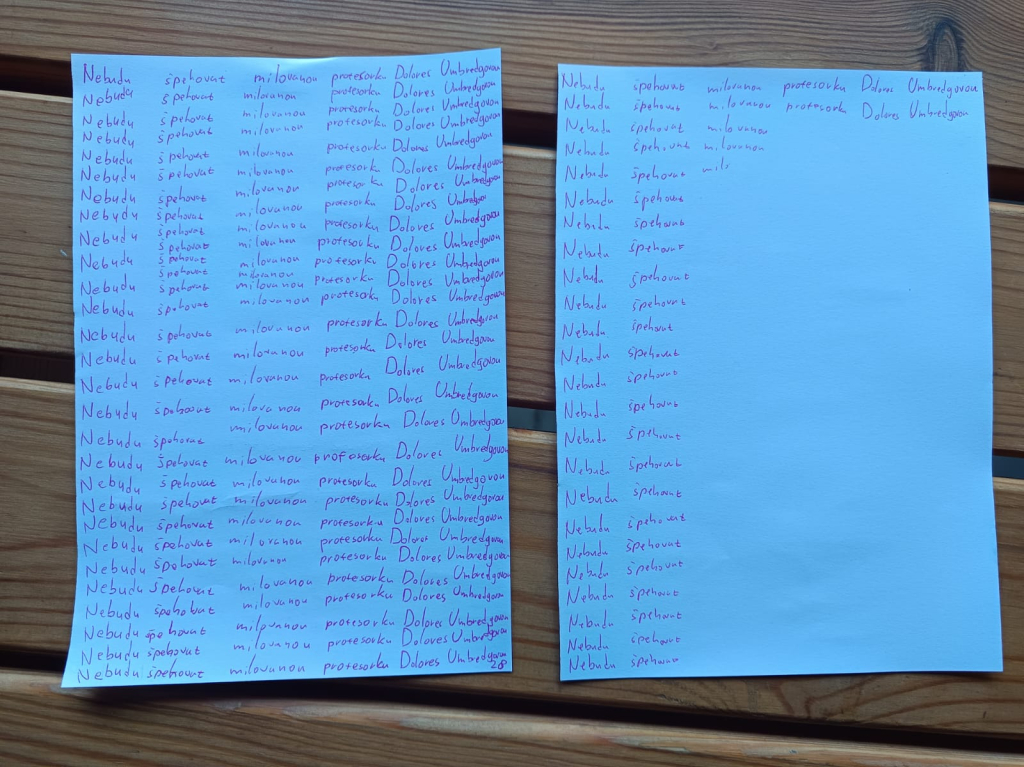 Nebudu špehovat milovanou profesorku Dolores Umbredgovou
Nebudu špehovat milovanou profesorku Dolores Umbredgovou
Nebudu špehovat milovanou profesorku Dolores Umbredgovou
Nebudu špehovat milovanou profesorku Dolores Umbredgovou
Nebudu špehovat milovanou profesorku Dolores Umbredgovou
Nebudu špehovat milovanou profesorku Dolores Umbredgovou
Nebudu špehovat milovanou profesorku Dolores Umbredgovou
Nebudu špehovat milovanou profesorku Dolores Umbredgovou
Nebudu špehovat milovanou profesorku Dolores Umbredgovou
špehovat milovanou profesorku Dolores Umbredgovou
Nebudu špehovat milovanou profesorku Dolores Umbredgovou
špehovat milovanou profesorku Dolores Umbredgovou
Nebudu špehovat milovanou profesorku Dolores Umbredgovou
Nebudu špehovat milovanou profesorku Dolores Umbredgovou
Nebudu špehovat milovanou profesorku Dolores Umbredgovou
Nebudu špehovat milovanou profesorku Dolores Umbredgovou
Nebudu špehovat milovanou profesorku Dolores Umbredgovou
Nebudu špehovat milovanou profesorku Dolores Umbredgovou
Nebudu špehovat milovanou profesorku Dolores Umbredgovou
Nebudu špehovat milovanou profosorku Dolores Umbredgovou
Nebudu špehovat milovanou profesorku Dolores Umbredgovou
Nebudu špehovat milovanou profesorku Dolores Umbredgovou
Nebudu špehovat milovanou profesorku Dolores Umbredgovou
Nebudu špehovat milovanou profesorku Dolores Umbredgovou
Nebudu špehovat milovanou profesorku Dolores Umbredgovou
Nebudu špehovat milovanou profesorku Dolores Umbredgovou
Nebudu špehovat milovanou profesorku Dolores Umbredgovou
Nebudu špehovat milovanou profesorku Dolores Umbredgovou
Nebudu špehovat milovanou profesorku Dolores Umbredgovou
Nebudu špehovat milovanou profesorku Dolores Umbredgovou
Nebudu špehovat milovanou profesorku Dolores Umbredgovou
Nebudu špehovat milovanou profesorku Dolores Umbredgovou
Nebudu špehovat milovanou
Nebudu špehovat milovanou
Nebudu špehovat
Nebudu špehovat
Nebudu špehovat
Nebudu špehovat
Nebudu špehovat
Nebudu špehovat
Nebudu špehovat
Nebudu špehovat
Nebudu špehovat
Nebudu špehovat
Nebudu špehovat
Nebudu špehovat
Nebudu špehovat
Nebudu špehovat
Nebudu špehovat
Nebudu špehovat
Nebudu špehovat
Nebudu špehovat
Nebudu špehovat
Nebudu špehovat